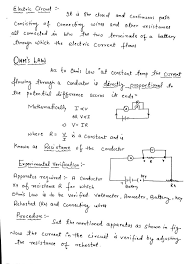 Electric Circuit :-
It is the closed and continuous path
consisting of connecting wires and other resistances
all connected in b/w the two terminals of a battery
through which the electric current flows
OHM'S LAW
As to Ohm's Law "at constant temp the current
flowing through a conductor is directly proportional to
the potential difference across its ends"
Mathematically I ∝ V
or V ∝ I
V = IR
Where R = V/I is a constant and is
known as Resistance of the conductor
Experimental Verification :-
Apparatus required : A conductor
of resistance R for which
Ohm's Law is to be verified voltmeter, Ammeter, Battery, Key
Rehostat (Rh) and connecting wires
Procedure :-
Set the mentioned apparatus as shown in fig
Now the current in the circuit is varied by adjusting
the resistance of rehostat